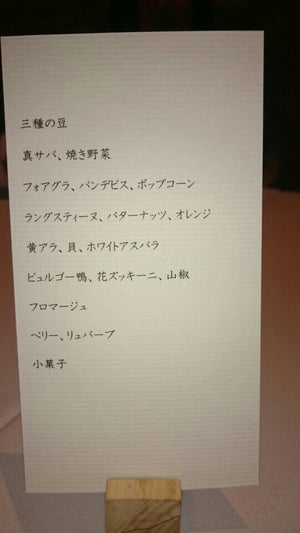 三種の豆
真サバ、焼き野菜
フォアグラ、パンデピス、ポップコーン
ラングスティーヌ、バターナッツ、オレンジ
黄アラ、貝、ホワイトアスパラ
ビュルゴー鴨、花ズッキーニ、山椒
フロマージュ
ベリー、リュバーブ
小菓子